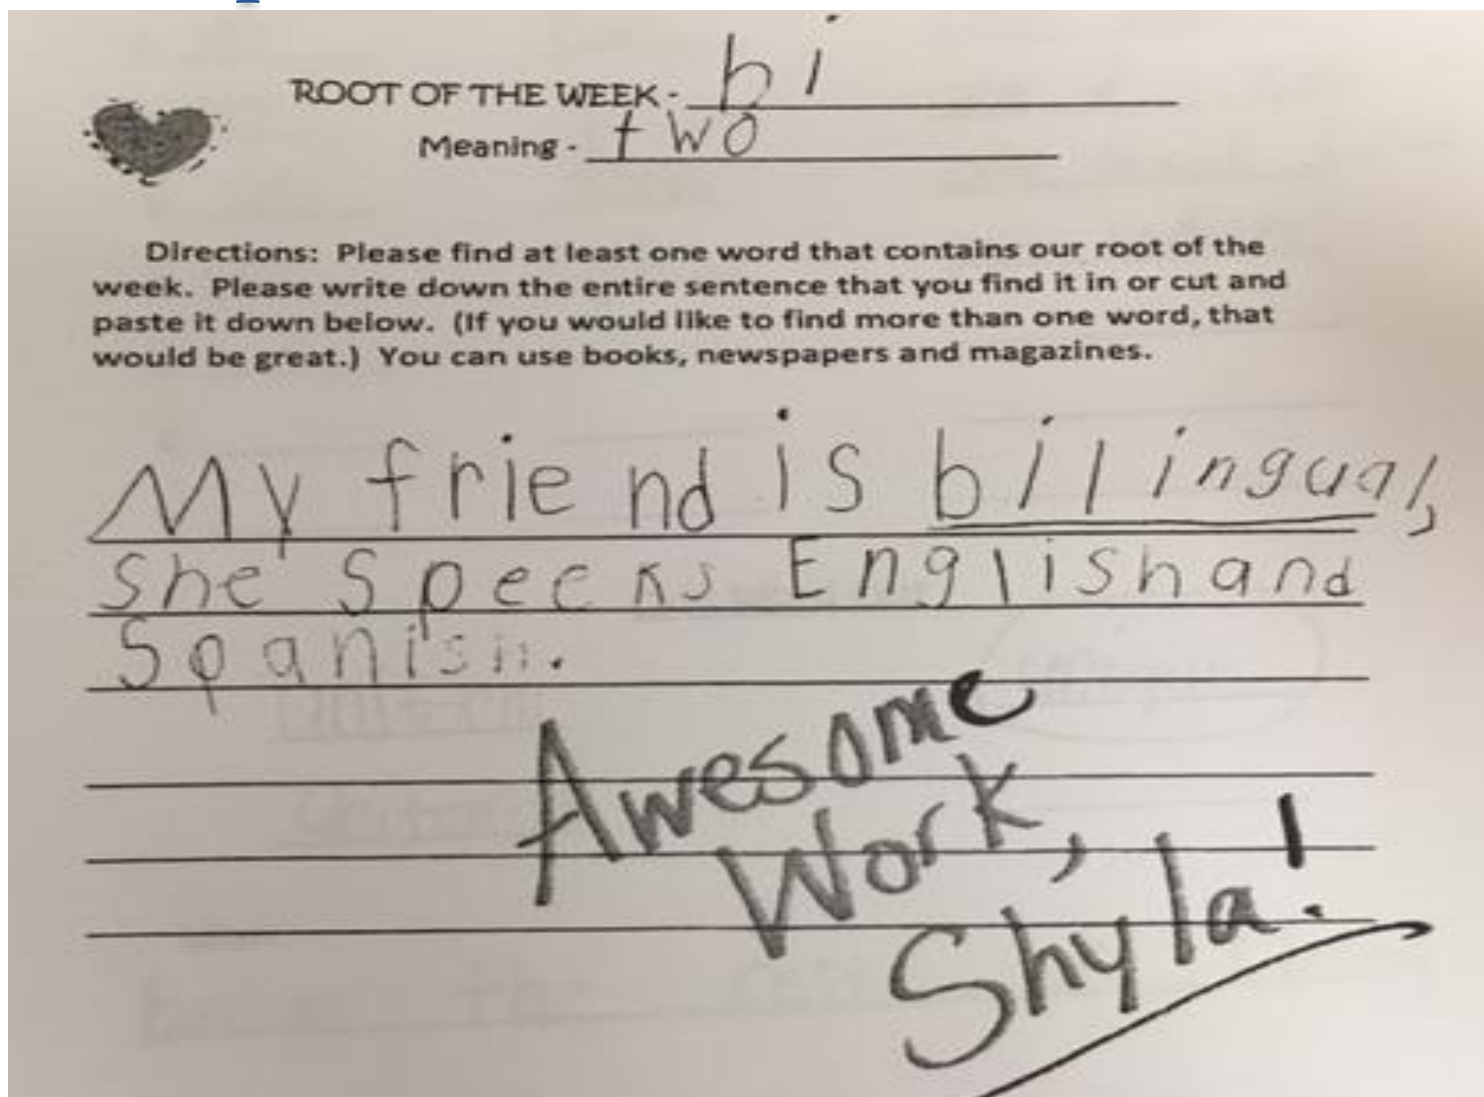 ROOT OF THE WEEK - bi
Meaning - two
Directions: Please find at least one word that contains our root of the
week. Please write down the entire sentence that you find it in or cut and
paste it down below. (If you would like to find more than one word, that
would be great.) You can use books, newspapers and magazines.
My friend is bilingual,
she specks English and
Spanish.
Awesome
Work,
Shyla!